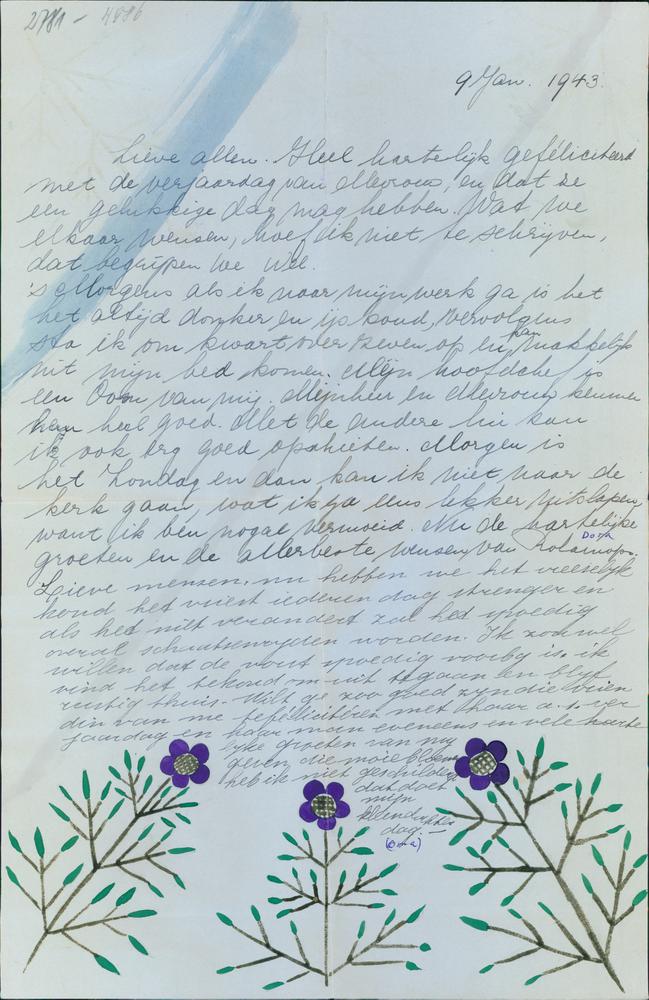 2781 - 4686
9 Jan. 1943.
Lieve allen. Heel hartelijk gefeliciteerd
met de verjaardag van Mevrouw, en dat ze
een gelukkige dag mag hebben. Wat we
elkaar wensen, hoef ik niet te schrijven,
dat begrijpen we wel.
's Morgens als ik naar mijn werk ga is het
het altijd donker en ijs koud, vervolgens
sta ik om kwart over zeven op en kan makkelijk
uit mijn bed komen. Mijn hoofdchef is
een Oom van mij. Mijnheer en Mevrouw kennen
hem heel goed. Met de andere lui kan
ik ook erg goed opschieten. Morgen is
het Zondag en dan kan ik niet naar de
kerk gaan, want ik ga eens lekker uitslapen,
want ik ben nogal vermoeid. Nu de hartelijke
groeten en de allerbeste wensen van
Dora
Lieve mensen, nu hebben we het vreeselijk
koud het vriest iederen dag strenger en
als het niet verandert zal het spoedig
overal schaatsenryden worden. Ik zou wel
willen dat de vorst spoedig voorby is, ik
vind het te koud om uit te gaan en blyf
rustig thuis. Wilt ge zoo goed zyn die vrien
din van me te feliciteren met haar a.s. ver
jaardag en haar man eveneens en vele harte
lyke groeten van my
geven, die mooie bloem
heb ik niet geschilderd
dat doet
mijn
kleindochter
dag. -
(Oma)